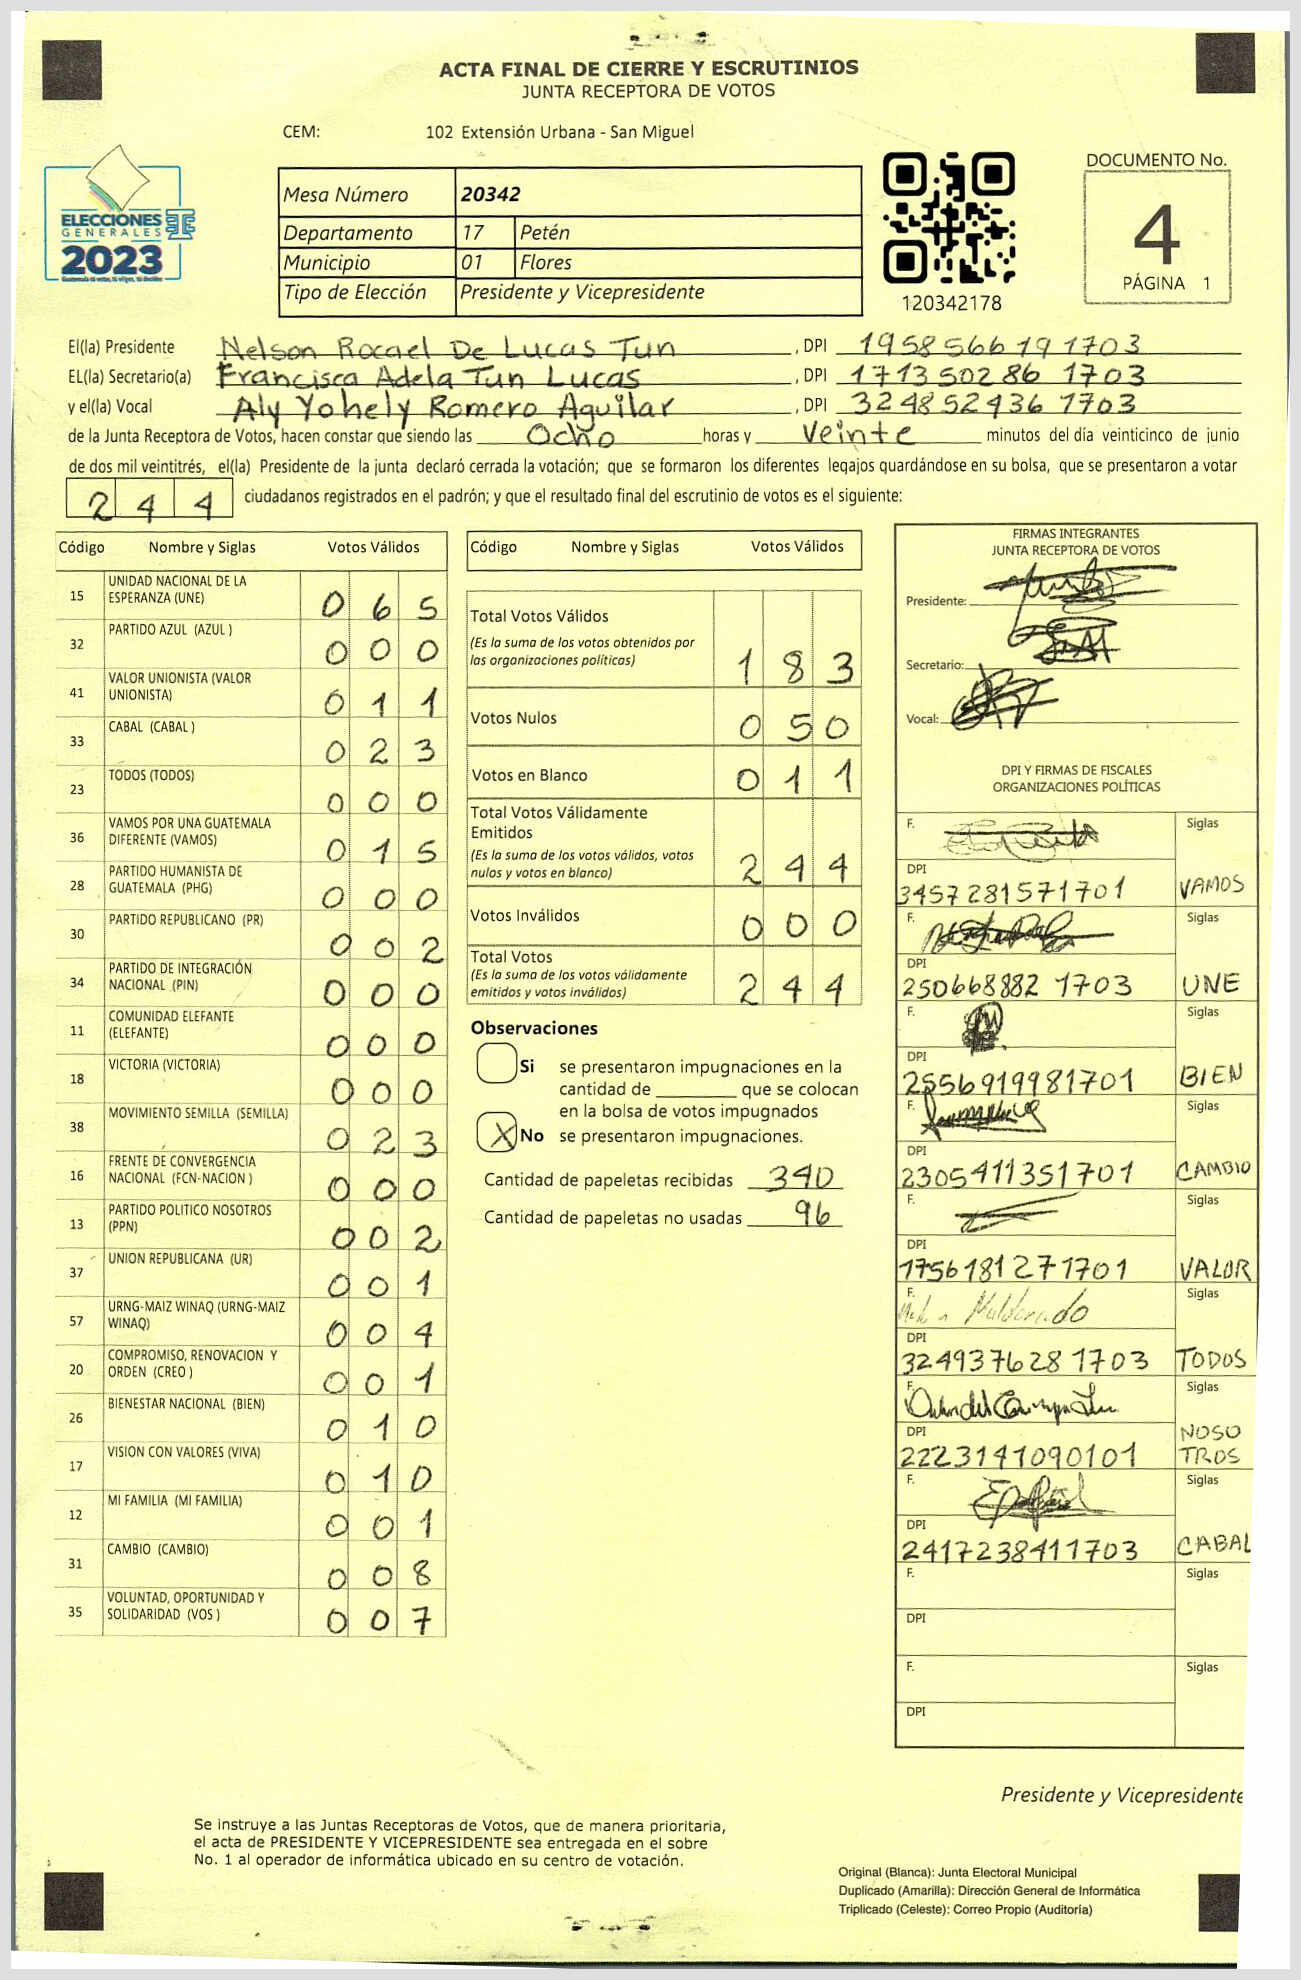 ACTA FINAL DE CIERRE Y ESCRUTINIOS
JUNTA RECEPTORA DE VOTOS
CEM: 102 Extensión Urbana - San Miguel
ELECCIONES
GENERALES
2023
Mesa Número 20342
Departamento 17 Petén
Municipio 01 Flores
Tipo de Elección Presidente y Vicepresidente
120342178
DOCUMENTO No.
4
PÁGINA 1
El(la) Presidente Nelson Rocael De Lucas Tun , DPI 1958566191703
EL(la) Secretario(a) Francisca Adela Tun Lucas , DPI 1713502861703
y el(la) Vocal Aly Yohely Romero Aguilar , DPI 3248524361703
de la Junta Receptora de Votos, hacen constar que siendo las Ocho horas y veinte minutos del día veinticinco de junio
de dos mil veintitrés, el(la) Presidente de la junta declaró cerrada la votación; que se formaron los diferentes legajos quardándose en su bolsa, que se presentaron a votar
244 ciudadanos registrados en el padrón; y que el resultado final del escrutinio de votos es el siguiente:
Código Nombre y Siglas Votos Válidos
15 UNIDAD NACIONAL DE LA ESPERANZA (UNE) 065
32 PARTIDO AZUL (AZUL ) 000
41 VALOR UNIONISTA (VALOR UNIONISTA) 011
33 CABAL (CABAL ) 023
23 TODOS (TODOS) 000
36 VAMOS POR UNA GUATEMALA DIFERENTE (VAMOS) 015
28 PARTIDO HUMANISTA DE GUATEMALA (PHG) 000
30 PARTIDO REPUBLICANO (PR) 002
34 PARTIDO DE INTEGRACIÓN NACIONAL (PIN) 000
11 COMUNIDAD ELEFANTE (ELEFANTE) 000
18 VICTORIA (VICTORIA) 000
38 MOVIMIENTO SEMILLA (SEMILLA) 023
16 FRENTE DE CONVERGENCIA NACIONAL (FCN-NACION ) 000
13 PARTIDO POLITICO NOSOTROS (PPN) 002
37 UNION REPUBLICANA (UR) 001
57 URNG-MAIZ WINAQ (URNG-MAIZ WINAQ) 004
20 COMPROMISO, RENOVACION Y ORDEN (CREO ) 001
26 BIENESTAR NACIONAL (BIEN) 010
17 VISION CON VALORES (VIVA) 010
12 MI FAMILIA (MI FAMILIA) 001
31 CAMBIO (CAMBIO) 008
35 VOLUNTAD, OPORTUNIDAD Y SOLIDARIDAD (VOS ) 007
Código Nombre y Siglas Votos Válidos
Total Votos Válidos 183
(Es la suma de los votos obtenidos por
las organizaciones políticas)
Votos Nulos 050
Votos en Blanco 011
Total Votos Válidamente
Emitidos 244
(Es la suma de los votos válidos, votos
nulos y votos en blanco)
Votos Inválidos 000
Total Votos 244
(Es la suma de los votos válidamente
emitidos y votos inválidos)
Observaciones
Si se presentaron impugnaciones en la
cantidad de ________ que se colocan
en la bolsa de votos impugnados
X No se presentaron impugnaciones.
Cantidad de papeletas recibidas 340
Cantidad de papeletas no usadas 96
FIRMAS INTEGRANTES
JUNTA RECEPTORA DE VOTOS
Presidente:
Secretario:
Vocal:
DPI Y FIRMAS DE FISCALES
ORGANIZACIONES POLÍTICAS
F. Siglas
DPI
3457281571701 VAMOS
F. Siglas
DPI
2506688821703 UNE
F. Siglas
DPI
2556919981701 BIEN
F. Siglas
DPI
2305411351701 CAMBIO
F. Siglas
DPI
1756181271701 VALOR
F. Maldonado Siglas
DPI
3249376281703 TODOS
F. Siglas
DPI
2223141090101 NOSO
TROS
F. Siglas
DPI
2417238411703 CABAL
F. Siglas
DPI
F. Siglas
DPI
Presidente y Vicepresidente
Se instruye a las Juntas Receptoras de Votos, que de manera prioritaria,
el acta de PRESIDENTE Y VICEPRESIDENTE sea entregada en el sobre
No. 1 al operador de informática ubicado en su centro de votación.
Original (Blanca): Junta Electoral Municipal
Duplicado (Amarilla): Dirección General de Informática
Triplicado (Celeste): Correo Propio (Auditoría)